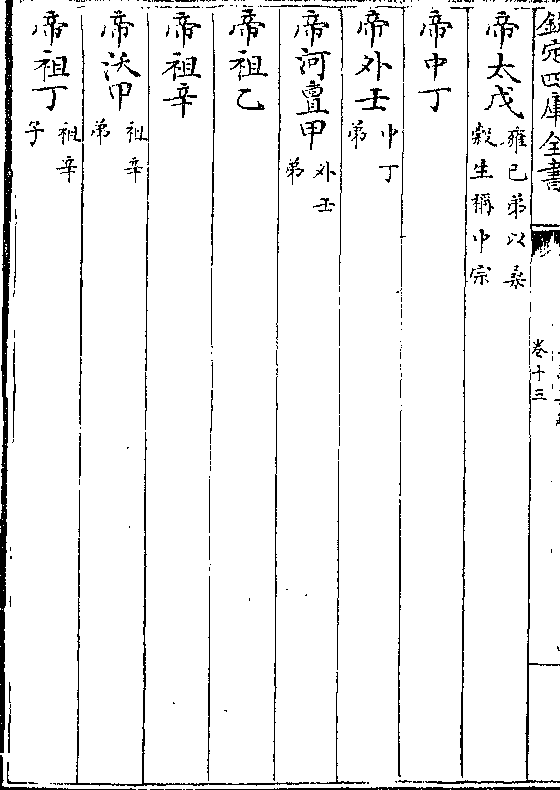 欽定四庫全書
卷十三
帝太戊雍已弟以桑
穀生稱中宗
帝中丁
帝外壬中丁
弟
帝河亶甲外壬
弟
帝祖乙
帝祖辛
帝沃甲祖辛
弟
帝祖丁祖辛
子